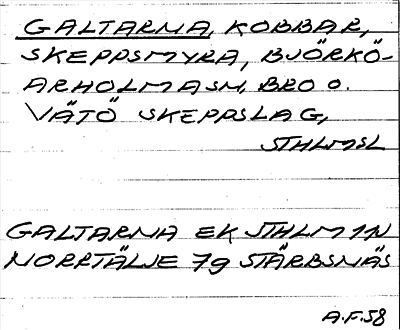 GALTARNA, KOBBAR,
SKEPPSMYRA, BJÖRKÖ-
ARHOLMA SN, BRO O.
VÄTÖ SKEPPSLAG,
STHLMSL
GALTARNA EK STHLM 1N
NORRTÄLJE 7g STÄRBSNÄS
A.F.58